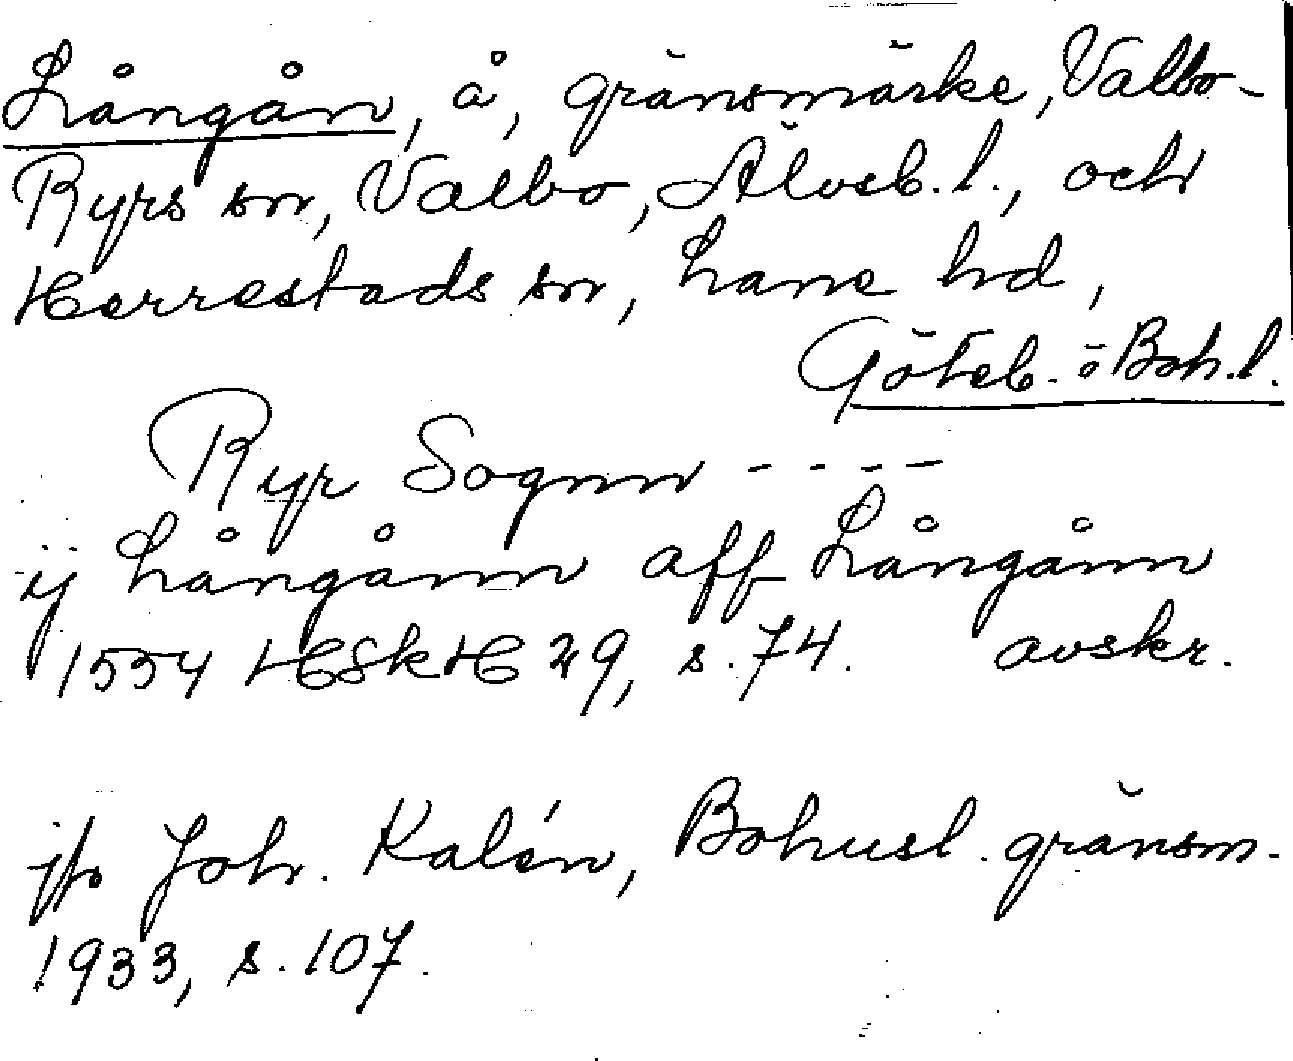 Långån, å, gränsmärke, Valbo-
Ryrs sn, Valbo, Älvsb. l., och
Herrestads sn, Lane hd,
Göteb. o Boh. l.
Ryr Sognn - - - -
ij Långånn aff Långånn
1554 HSkH 29, s. 74. avskr.
jfr Joh. Kalén, Bohusl. gränsm.
1933, s. 107.